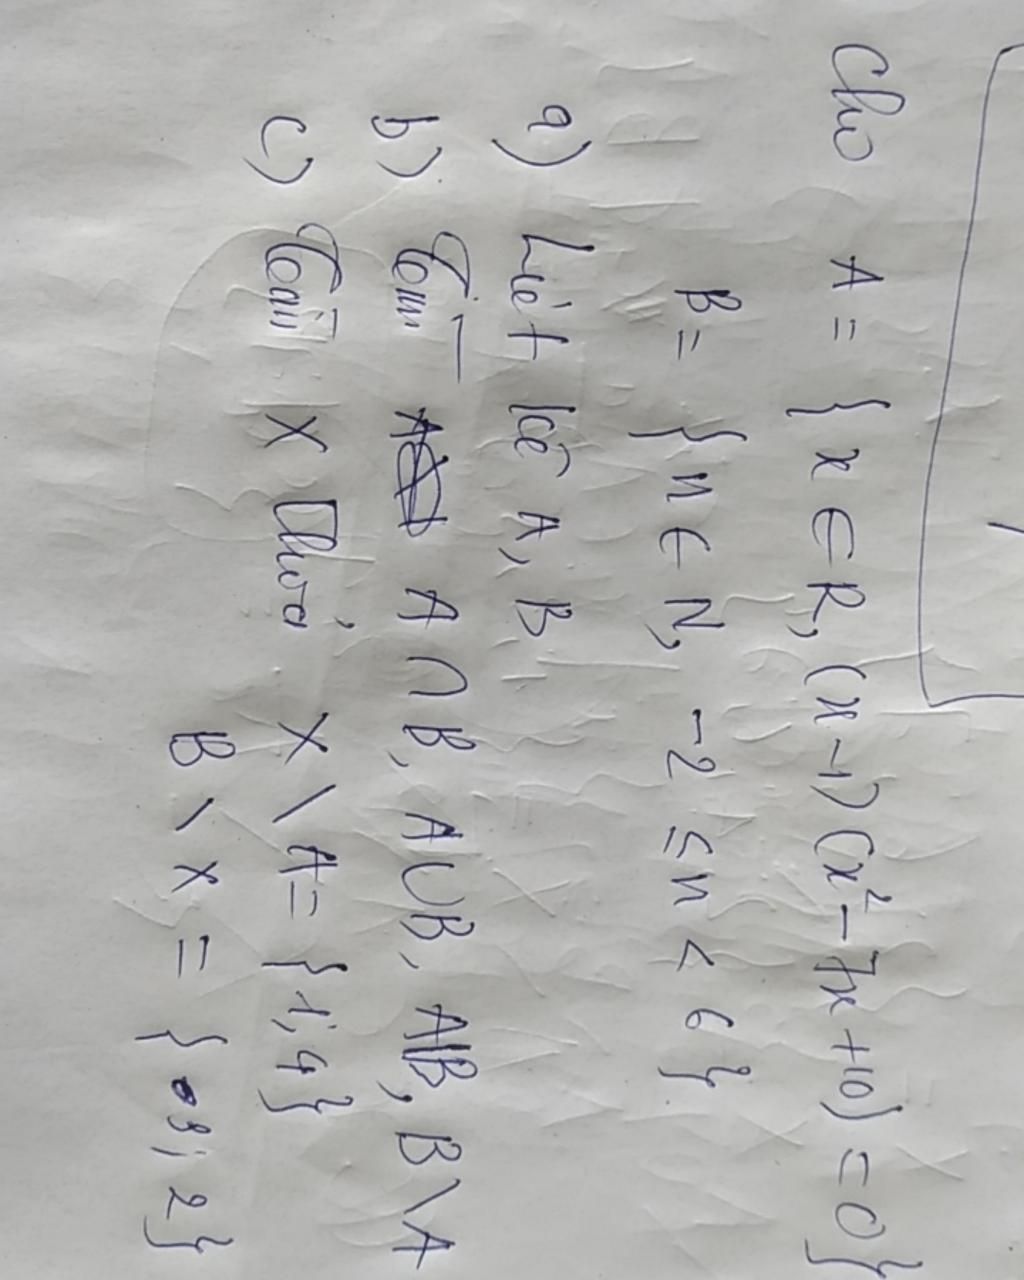 Cho A = { x ∈ R, (x-1)(x² - 7x + 10) = 0}
B = { n ∈ N, -2 ≤ n < 6}
a) Liệt kê A, B
b) Tìm A ∩ B, A ∪ B, A\B, B \ A
c) Tìm X Thỏa X \ A = {1; 4}
B \ X = { 3; 2}